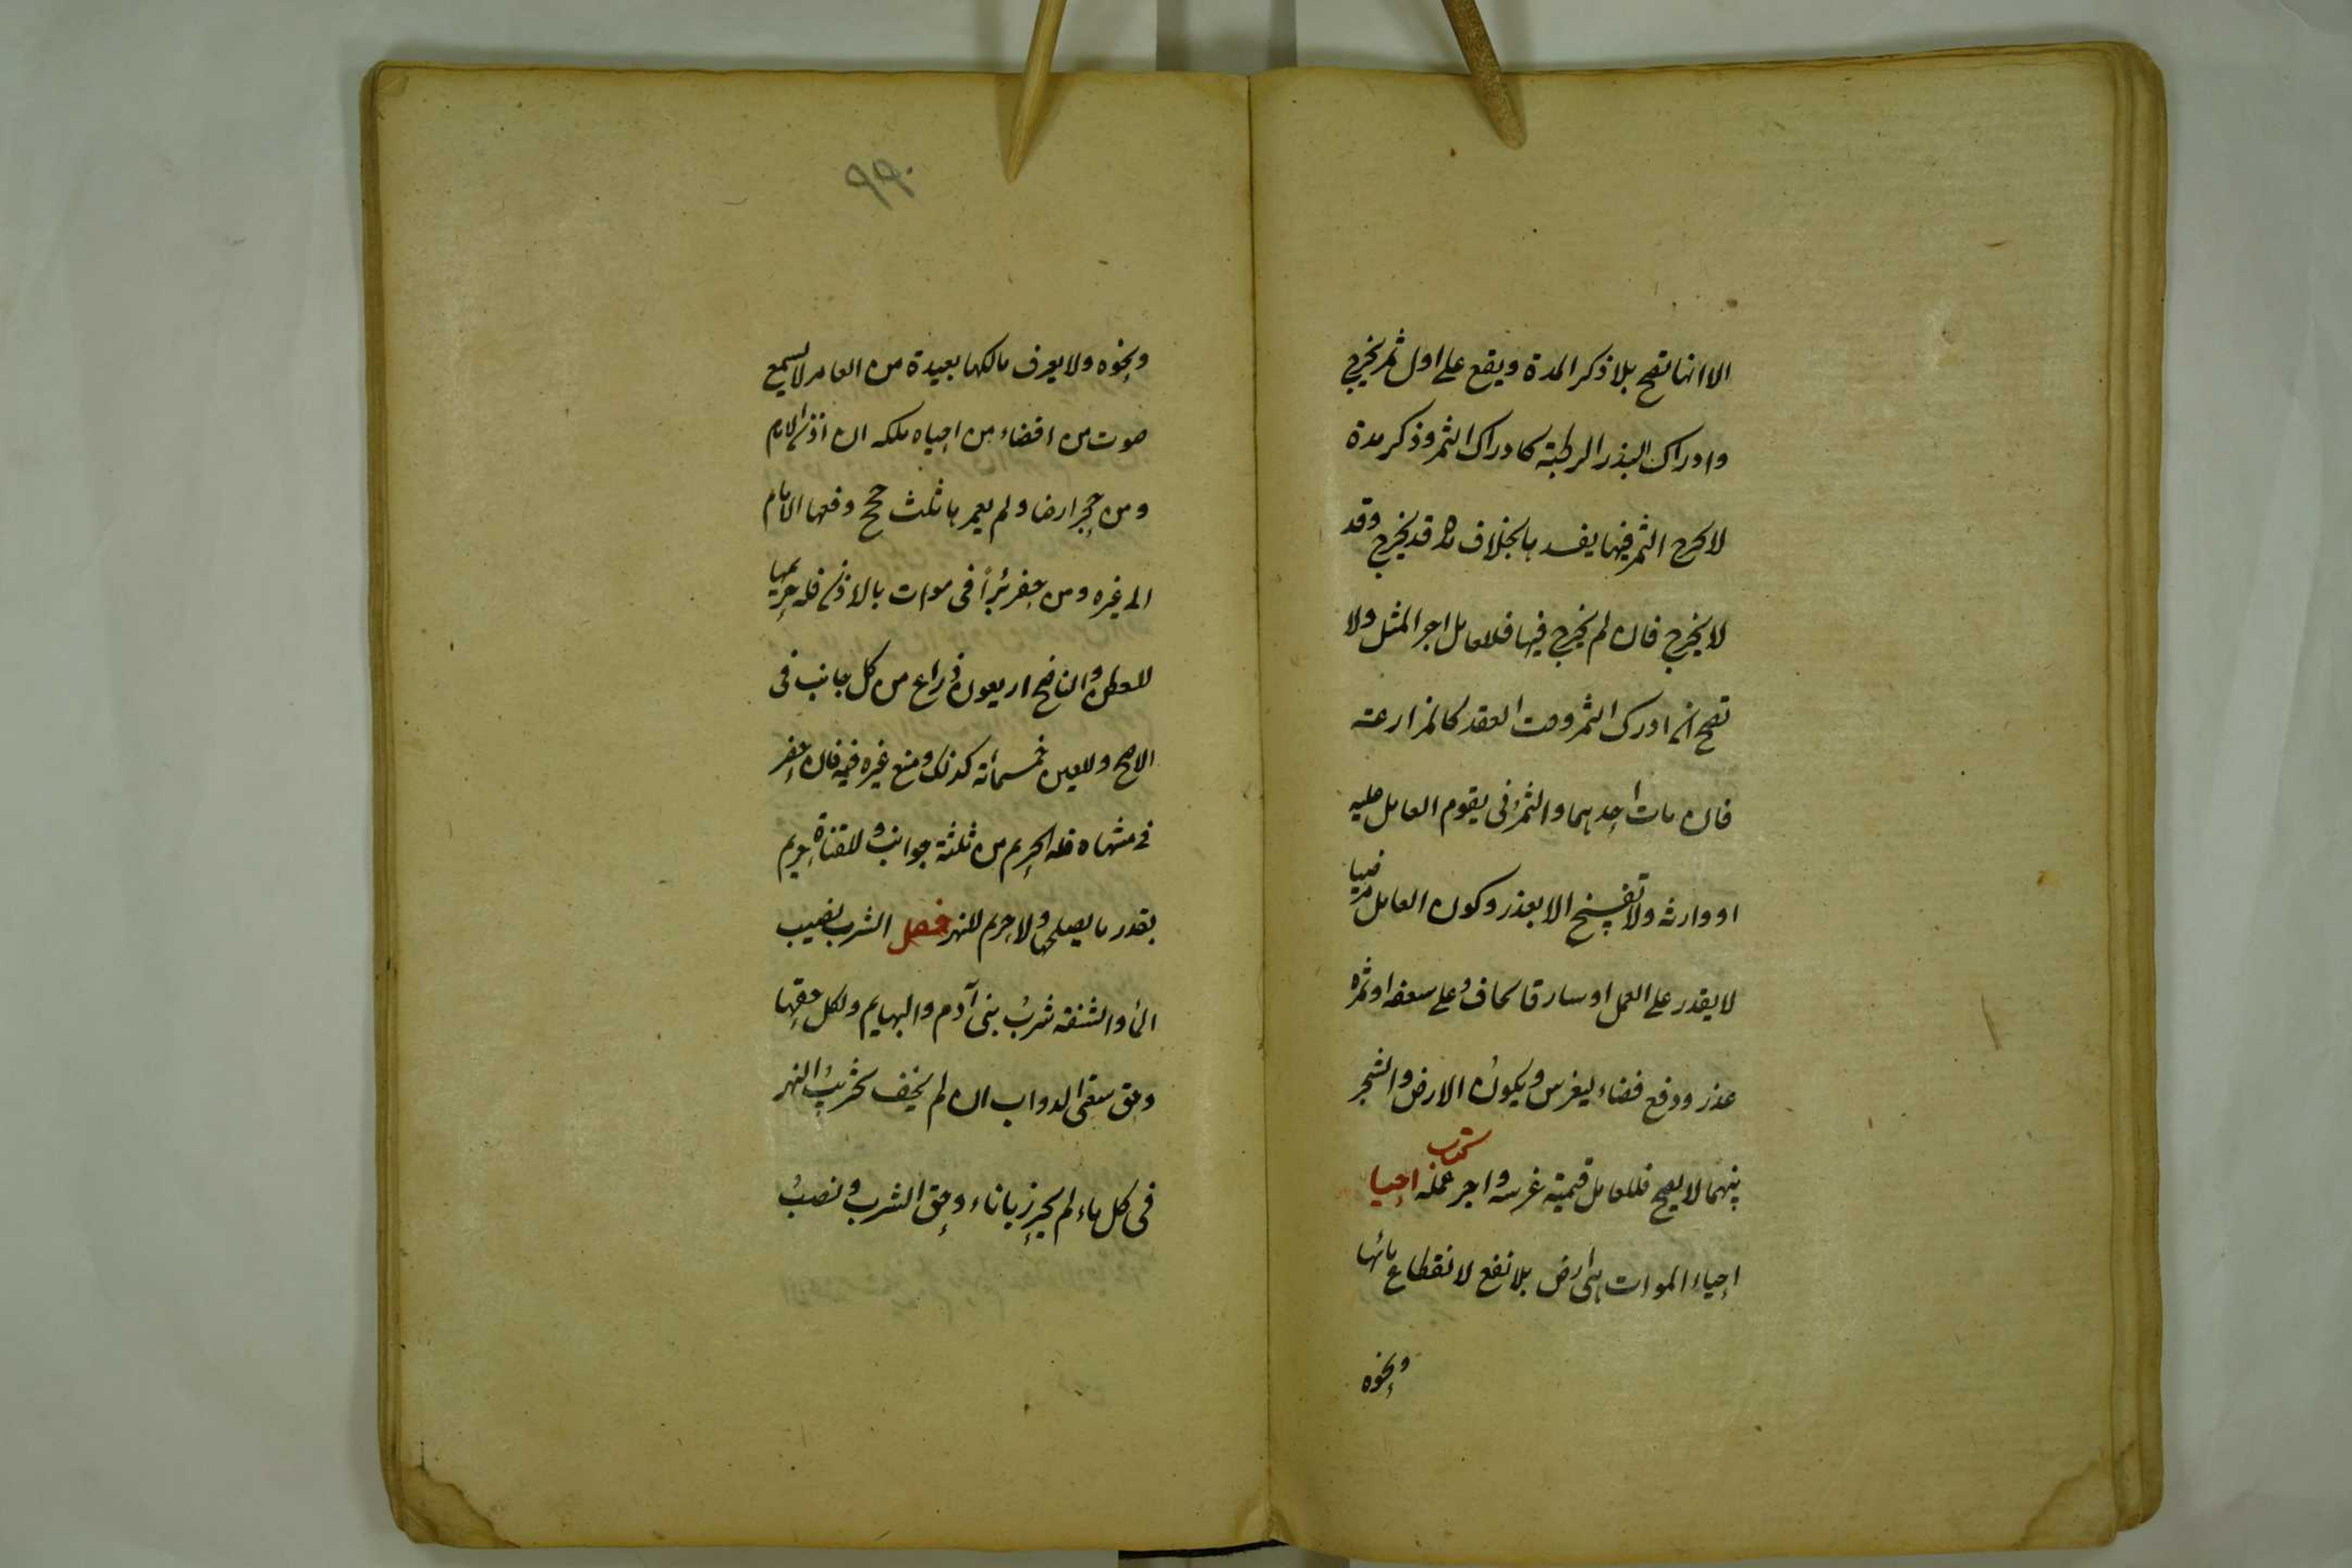 الا انها تصح بلا ذكر المدة ويقع على اول ثمر يخرج
وادراك البذر الرطبة كادراك الثمر وذكر مدة
لا يخرج الثمر فيها يفسد بالخلاف مدة قد يخرج وقد
لا يخرج فان لم يخرج فيها فللعامل اجر المثل ولا
تصح ان ادرك الثمر وقت العقد كالمزارعة
فان مات احدهما والثمر نى يقوم العامل عليه
او وارثه ولا تفسخ الا بعذر وكون العامل مريضا
لا يقدر على العمل او سارقا يخاف على سعفه او ثمره
عذر ودفع فضاء ليغرس ويكون الارض والشجر
بينهما لا يصح فللعامل قيمة غرسه واجر عمله كتاب احيا
احياء الموات هى ارض بلا نفع لانقطاع مائها
ونحوه
٩٩٠
ونحوه ولا يعرف مالكها بعيدة من العامر لا يسمع
صوت من اقصاه من احياه ملكه ان اذن الامام
ومن حجر ارضا ولم يعمر ها ثلث حجج دفعها الامام
الى غيره ومن حفر بئرا فى موات بالاذن فله حريمها
للعطن والناضح اربعون ذراع من كل جانب فى
الاصح وللعين خمسمائة كذلك ومنع غيره فيه فان حفر
فى منتهاه فله الحريم من ثلثة جوانب وللقناة حريم
بقدر ما يصلحها ولا حريم للنهر فصل الشرب نصيب
الماء والشفة شرب بنى آدم والبهايم ولكل حقها
وحق سقى الدواب ان لم يخف تخريب النهر
فى كل ماء لم يحرز باناء وحق الشرب ونصب